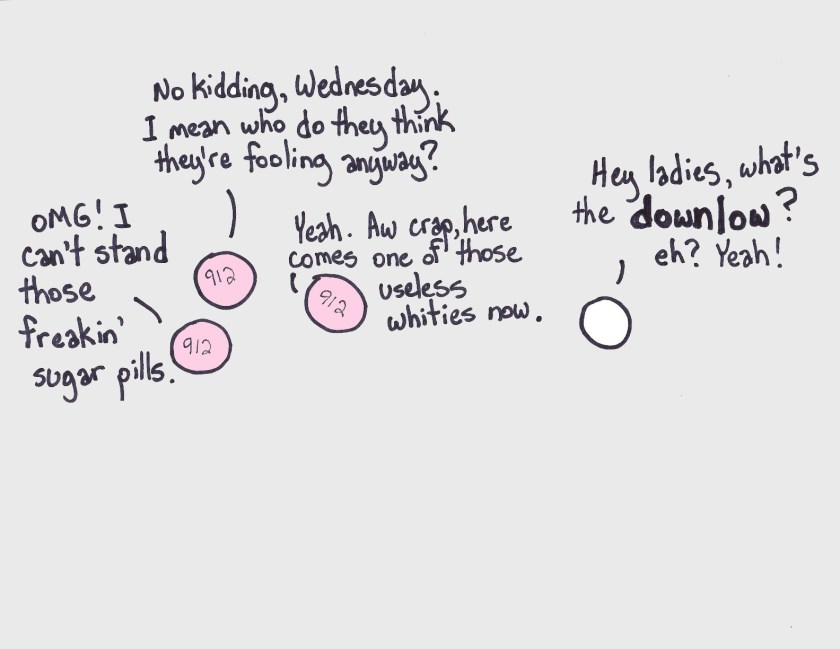 No kidding, Wednesday.
I mean who do they think
they're fooling anyway?
OMG! I
can't stand
those
freakin'
sugar pills.
912
912
Yeah. Aw crap, here
comes one of those
useless
whities now.
912
Hey ladies, what's
the downlow?
eh? Yeah!